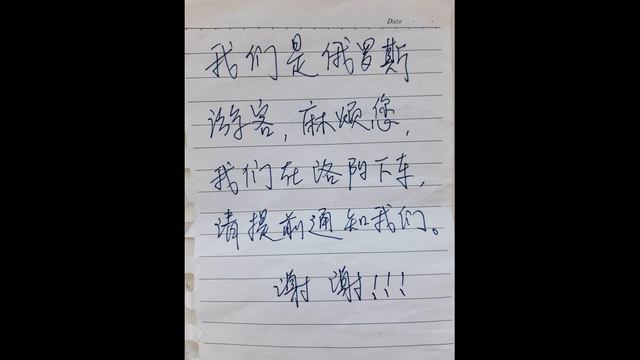 Date
我们是俄罗斯
游客，麻烦您，
我们在洛阳下车，
请提前通知我们。
谢谢!!!